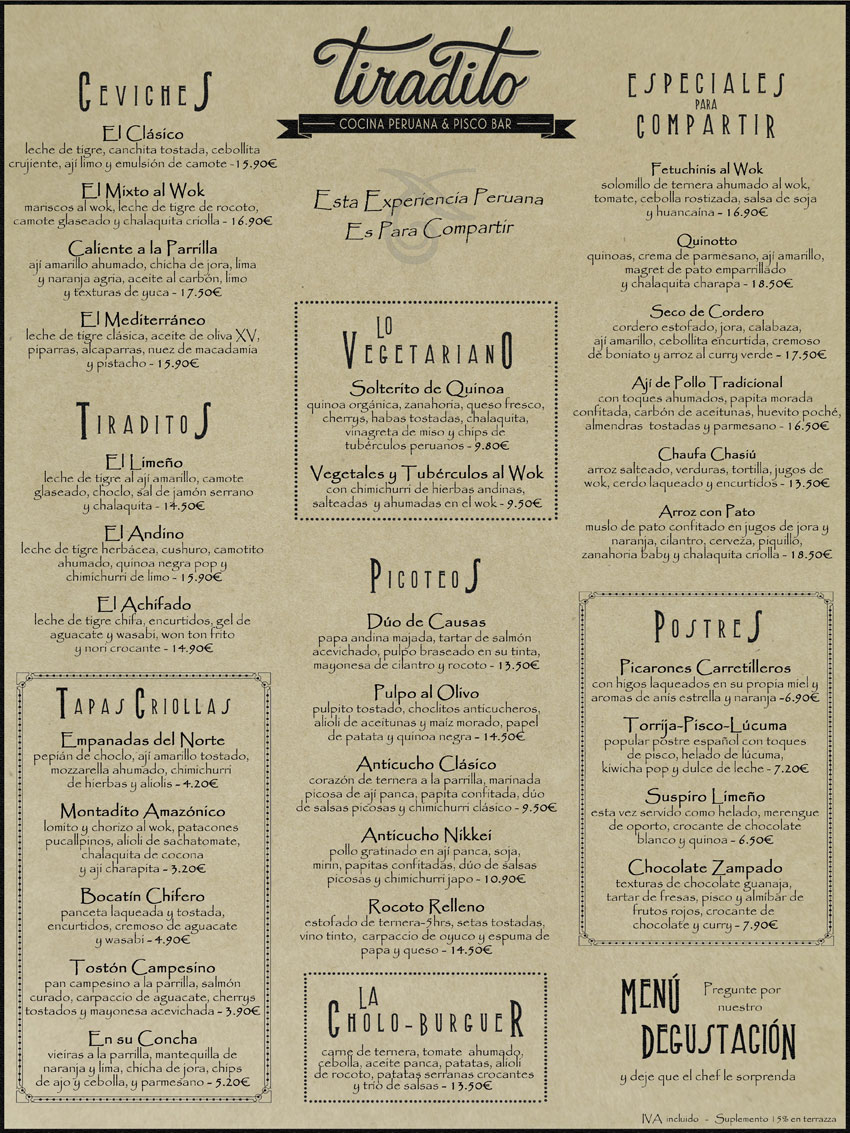 Tiradito
COCINA PERUANA & PISCO BAR
Esta Experiencia Peruana
Es Para Compartir
CEVICHES
El Clásico
leche de tigre, canchita tostada, cebollita
crujiente, ají limo y emulsión de camote - 15.90€
El Mixto al Wok
mariscos al wok, leche de tigre de rocoto,
camote glaseado y chalaquita criolla - 16.90€
Caliente a la Parrilla
ají amarillo ahumado, chicha de jora, lima
y naranja agria, aceite al carbón, limo
y texturas de yuca - 17.50€
El Mediterráneo
leche de tigre clásica, aceite de oliva XV,
piparras, alcaparras, nuez de macadamia
y pistacho - 15.90€
TIRADITOS
El Limeño
leche de tigre al ají amarillo, camote
glaseado, choclo, sal de jamón serrano
y chalaquita - 14.50€
El Andino
leche de tigre herbácea, cushuro, camotito
ahumado, quinoa negra pop y
chimichurri de limo - 15.90€
El Achifado
leche de tigre chifa, encurtidos, gel de
aguacate y wasabi, won ton frito
y nori crocante - 14.90€
TAPAS CRIOLLAS
Empanadas del Norte
pepián de choclo, ají amarillo tostado,
mozzarella ahumado, chimichurri
de hierbas y aliolis - 4.20€
Montadito Amazónico
lomito y chorizo al wok, patacones
pucallpinos, alioli de sachatomate,
chalaquita de cocona
y ají charapita - 3.20€
Bocatín Chifero
panceta laqueada y tostada,
encurtidos, cremoso de aguacate
y wasabi - 4.90€
Tostón Campesino
pan campesino a la parrilla, salmón
curado, carpaccio de aguacate, cherrys
tostados y mayonesa acevichada - 3.90€
En su Concha
vieiras a la parrilla, mantequilla de
naranja y lima, chicha de jora, chips
de ajo y cebolla, y parmesano - 5.20€
LO
VEGETARIANO
Solterito de Quinoa
quinoa orgánica, zanahoria, queso fresco,
cherrys, habas tostadas, chalaquita,
vinagreta de miso y chips de
tubérculos peruanos - 9.80€
Vegetales y Tubérculos al Wok
con chimichurri de hierbas andinas,
salteadas y ahumadas en el wok - 9.50€
PICOTEOS
Dúo de Causas
papa andina majada, tartar de salmón
acevichado, pulpo braseado en su tinta,
mayonesa de cilantro y rocoto - 13.50€
Pulpo al Olivo
pulpito tostado, choclitos anticucheros,
alioli de aceitunas y maíz morado, papel
de patata y quinoa negra - 14.50€
Anticucho Clásico
corazón de ternera a la parrilla, marinada
picosa de ají panca, papita confitada, dúo
de salsas picosas y chimichurri clásico - 9.50€
Anticucho Nikkei
pollo gratinado en ají panca, soja,
mirin, papitas confitadas, dúo de salsas
picosas y chimichurri japo - 10.90€
Rocoto Relleno
estofado de ternera-5hrs, setas tostadas,
vino tinto, carpaccio de oyuco y espuma de
papa y queso - 14.50€
LA
CHOLO-BURGUER
carne de ternera, tomate ahumado,
cebolla, aceite panca, patatas, alioli
de rocoto, patatas serranas crocantes
y trío de salsas - 13.50€
ESPECIALES
PARA
COMPARTIR
Fetuchinis al Wok
solomillo de ternera ahumado al wok,
tomate, cebolla rostizada, salsa de soja
y huancaína - 16.90€
Quinotto
quinoas, crema de parmesano, ají amarillo,
magret de pato emparrillado
y chalaquita charapa - 18.50€
Seco de Cordero
cordero estofado, jora, calabaza,
ají amarillo, cebollita encurtida, cremoso
de boniato y arroz al curry verde - 17.50€
Ají de Pollo Tradicional
con toques ahumados, papita morada
confitada, carbón de aceitunas, huevito poché,
almendras tostadas y parmesano - 16.50€
Chaufa Chasiú
arroz salteado, verduras, tortilla, jugos de
wok, cerdo laqueado y encurtidos - 13.50€
Arroz con Pato
muslo de pato confitado en jugos de jora y
naranja, cilantro, cerveza, piquillo,
zanahoria baby y chalaquita criolla - 18.50€
POSTRES
Picarones Carretilleros
con higos laqueados en su propia miel y
aromas de anís estrella y naranja -6.90€
Torrija-Pisco-Lúcuma
popular postre español con toques
de pisco, helado de lúcuma,
kiwicha pop y dulce de leche - 7.20€
Suspiro Limeño
esta vez servido como helado, merengue
de oporto, crocante de chocolate
blanco y quinoa - 6.50€
Chocolate Zampado
texturas de chocolate guanaja,
tartar de fresas, pisco y almíbar de
frutos rojos, crocante de
chocolate y curry - 7.90€
MENÚ
Pregunte por
nuestro
DEGUSTACIÓN
y deje que el chef le sorprenda
IVA incluido - Suplemento 15% en terrazza